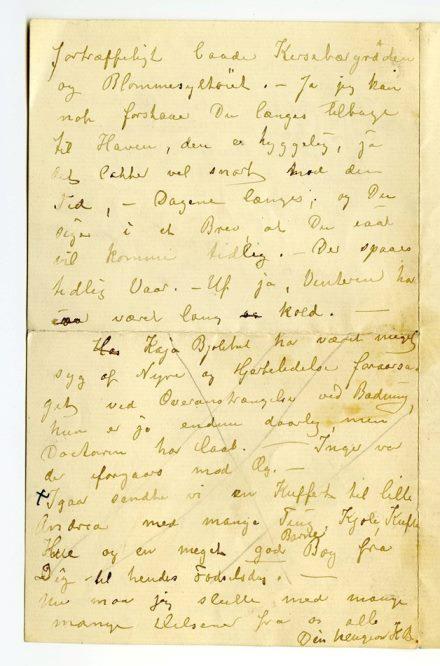 fortræffeligt baade Kirsebærgrøden
og Blommesyltetøiet. — Ja jeg kan
nok forstaae Du længes tilbage
til Haven, den er hyggelig, ja
det lakker vel snart mod den
Tid, — Dagene længes; og Du
siger i et Brev, at Du
vil komme tidlig. — Der spaaes
tidlig Vaar. — Uf ja, Vinteren har
været lang kold. —
Kaja har været meget
syg af Nyre og Hjertelidelse foraarsa-
get ved Overanstrængelse ved Badning,
hun er jo endnu daarlig, men
Doctoren har Haab. — Inger var
der forgaars med Æg. —
+Igaar sendte vi en Kuffert til lille
Andrea med mange Ting, Kjole, Kufte
Hue og en meget god Barne Bog fra
Dig til hendes Fødselsdag. —
Nu maa jeg slutte med mange
mange Hilsener fra os alle
Din hengivne